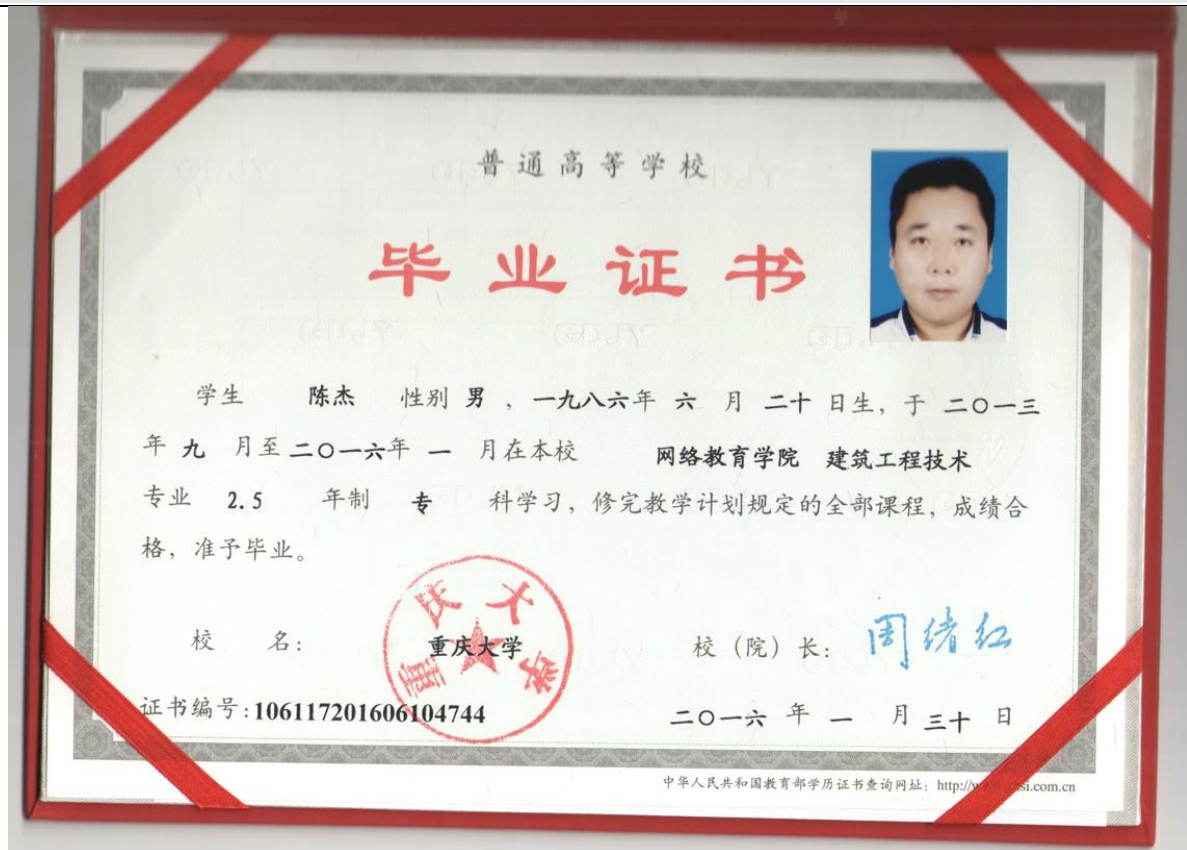 普通高等学校
毕业证书
学生 陈杰 性别 男 ,一九八六年 六 月 二十 日生,于 二〇一三
年 九 月至 二〇一六年 一 月在本校 网络教育学院 建筑工程技术
专业 2.5 年制 专 科学习,修完教学计划规定的全部课程,成绩合
格,准予毕业。
校 名: 重庆大学 校(院)长: 周绪红
重庆大学
证书编号:106117201606104744 二〇一六 年 一 月 三十 日
中华人民共和国教育部学历证书查询网址:http://
si.com.cn